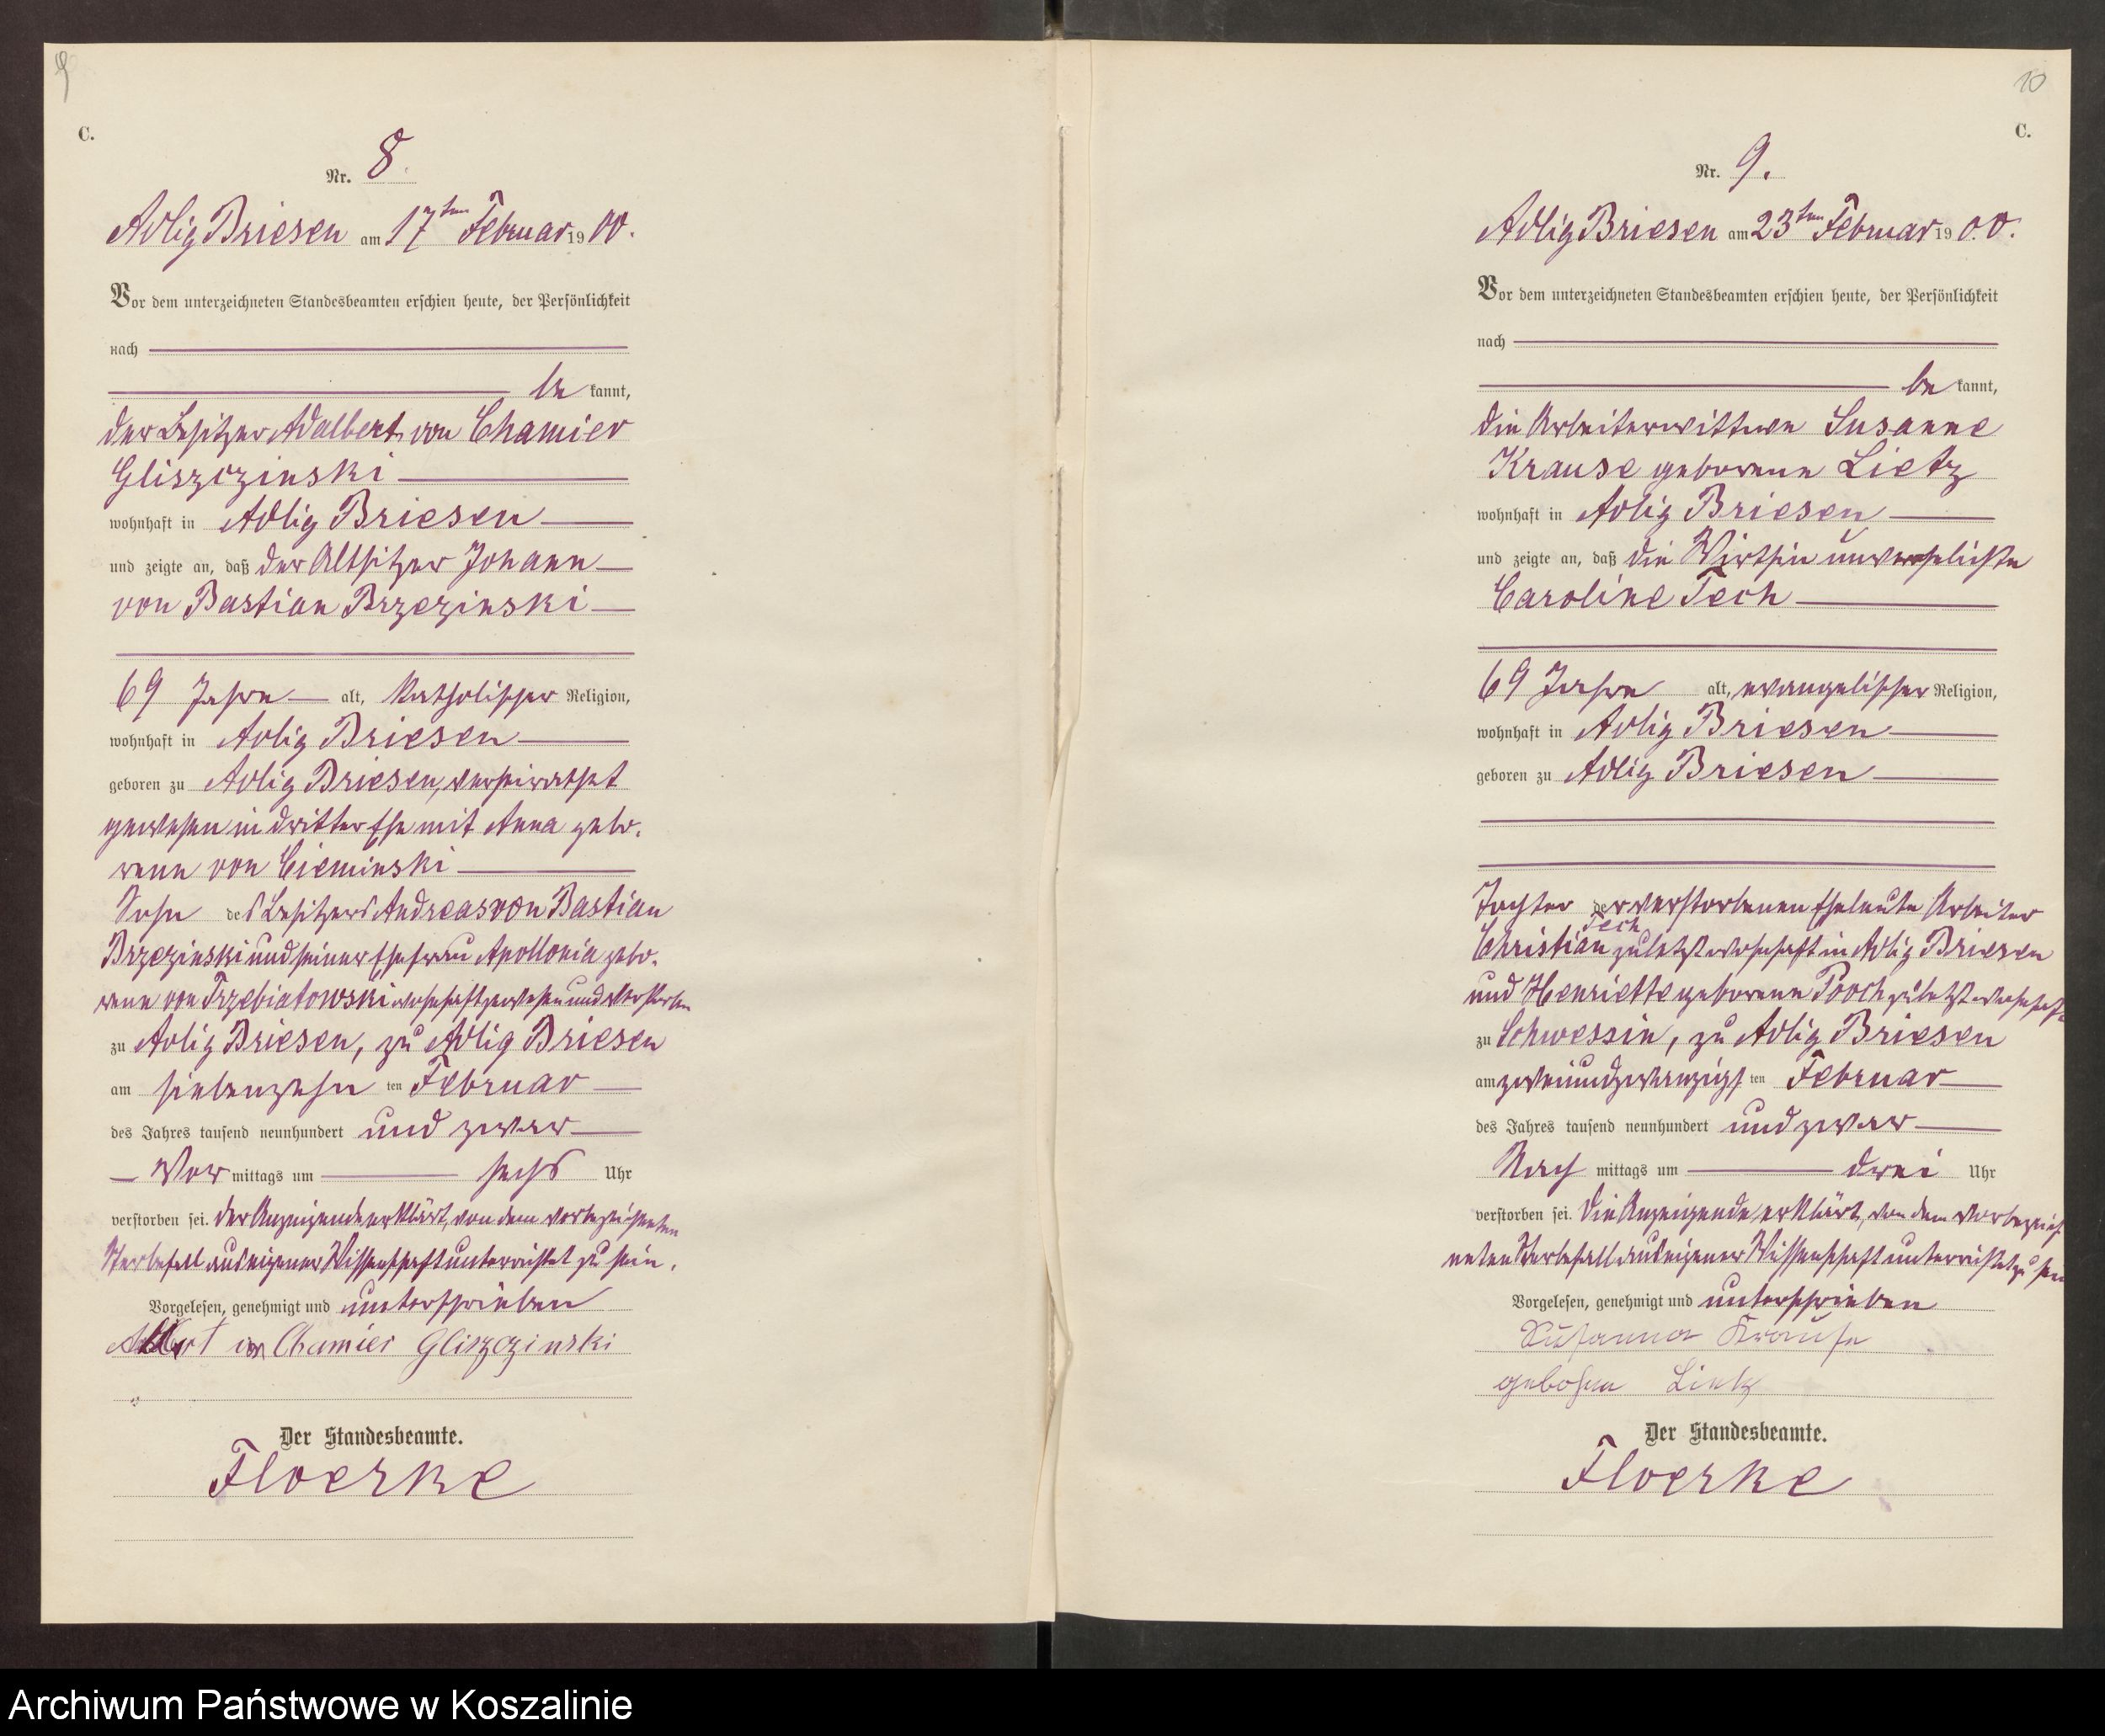 9
C.
Nr. 8.
Adlig Briesen am 17ten Februar 1900.
Vor dem unterzeichneten Standesbeamten erschien heute, der Persönlichkeit
nach
be kannt,
der Besitzer Adalbert von Chamier
Gliszczinski
wohnhaft in Adlig Briesen
und zeigte an, daß der Altsitzer Johann
von Bastian Brzezinski
69 Jahre alt, katholischer Religion,
wohnhaft in Adlig Briesen
geboren zu Adlig Briesen, verheirathet
gewesen in dritter Ehe mit Anna gebo-
rene von Cieminski
Sohn des Besitzers Andreas von Bastian
Brzezinski und seiner Ehefrau Apollonia gebo-
rene von Trzebiatowski wohnhaft gewesen und verstorben
zu Adlig Briesen, zu Adlig Briesen
am siebenzehn ten Februar
des Jahres tausend neunhundert und zwar
Vor mittags um sechs Uhr
verstorben sei. Der Anzeigende erklärt, von dem vorbezeichneten
Sterbefall aus eigener Wissenschaft unterrichtet zu sein.
Vorgelesen, genehmigt und unterschrieben
von Chamier Gliszczinski
Der Standesbeamte.
Floerke
10
C.
Nr. 9.
Adlig Briesen am 23ten Februar 1900.
Vor dem unterzeichneten Standesbeamten erschien heute, der Persönlichkeit
nach
be kannt,
die Arbeiterwittwe Susanne
Krause geborene Lietz
wohnhaft in Adlig Briesen
und zeigte an, daß die Wirthin unverehelichte
Caroline Tech
69 Jahre alt, evangelischer Religion,
wohnhaft in Adlig Briesen
geboren zu Adlig Briesen
Tochter der verstorbenen Eheleute Arbeiter
Christian Tech zuletzt wohnhaft in Adlig Briesen
und Henriette geborene Pooch zuletzt wohnhaft
zu Schwessin, zu Adlig Briesen
am zweiundzwanzigs ten Februar
des Jahres tausend neunhundert und zwar
Nach mittags um drei Uhr
verstorben sei. Die Anzeigende erklärt, von dem vorbezeich
neten Sterbefall aus eigener Wissenschaft unterrichtet zu sein
Vorgelesen, genehmigt und unterschrieben
Susanna Krause
geborene Lietz
Der Standesbeamte.
Floerke
Archiwum Państwowe w Koszalinie